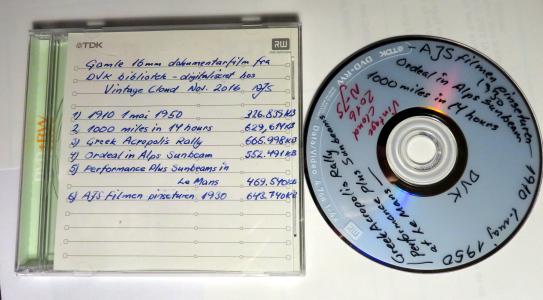 TDK
RW
Gamle 16mm dokumentarfilm fra
DVK bibliotek - digitaliseret hos
Vintage Cloud Nov. 2016. NJS
1) 1910 1 maj 1950 326.835KB
2) 1000 miles in 14 hours 629,614KB
3) Greek Acropolis Rally 665.998KB
4) Ordeal in Alps Sunbeam 552.491KB
5) Performance Plus Sunbeams in
Le Mans 469,540KB
6) AJS Filmen pinseturen 1950 643.740KB
- AJS filmen pinseturen - 1950
Ordeal in Alps Sunbeam
1000 miles in 14 hours
Vintage
Cloud
2016
NJS
DVK
1910 1. maj 1950
Greek Acropolis Rally
Performance Plus Sunbeams
at Le Mans
TDK
DVD-RW
Data/Video